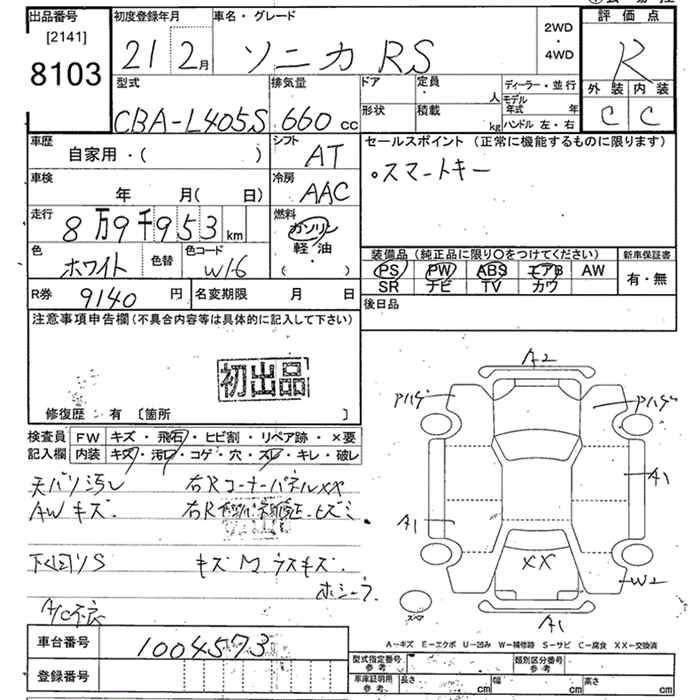 出品番号 初度登録年月 車名・グレード 2WD・4WD 評価点
[2141]
8103 21 2月 ソニカ RS R
型式 排気量 ドア 定員 人 ディーラー・並行 外装 内装
CBA-L405S 660cc 形状 積載 kg モデル年式 年 ハンドル 左・右 C C
車歴 シフト セールスポイント (正常に機能するものに限ります)
自家用・( ) AT
スマートキー
車検 年 月( 日) 冷房 AAC
走行 8万9千953km 燃料 ガソリン
軽・油
( )
色 ホワイト 色替 色コード W16
装備品 (純正品に限り〇をつけてください) 新車保証書
PS PW ABS エアB AW 有・無
SR ナビ TV カワ
R券 9140円 名変期限 月 日 後日品
注意事項申告欄 (不具合内容等は具体的に記入して下さい)
初出品
修復歴 有 〔箇所 〕
検査員 FW キズ・飛石・ヒビ割・リペア跡・×要
記入欄 内装 キズ・汚レ・コゲ・穴・スレ・キレ・破レ
天バリ汚レ 右Rコーナーパネルxx
AWキズ 右R ヒズミ
下回りS キズ M ウスキズ
A/C不良
A2
Pハゲ Pハゲ
A1 A1
XX
W2
スペア A1
A-キズ E-エクボ U-凹み W-補修跡 S-サビ C-腐食 XX-交換済
車台番号 1004573
登録番号
型式指定番号 参考 類別区分番号 参考
車庫証明用 参考 長さ cm 幅 cm 高さ cm